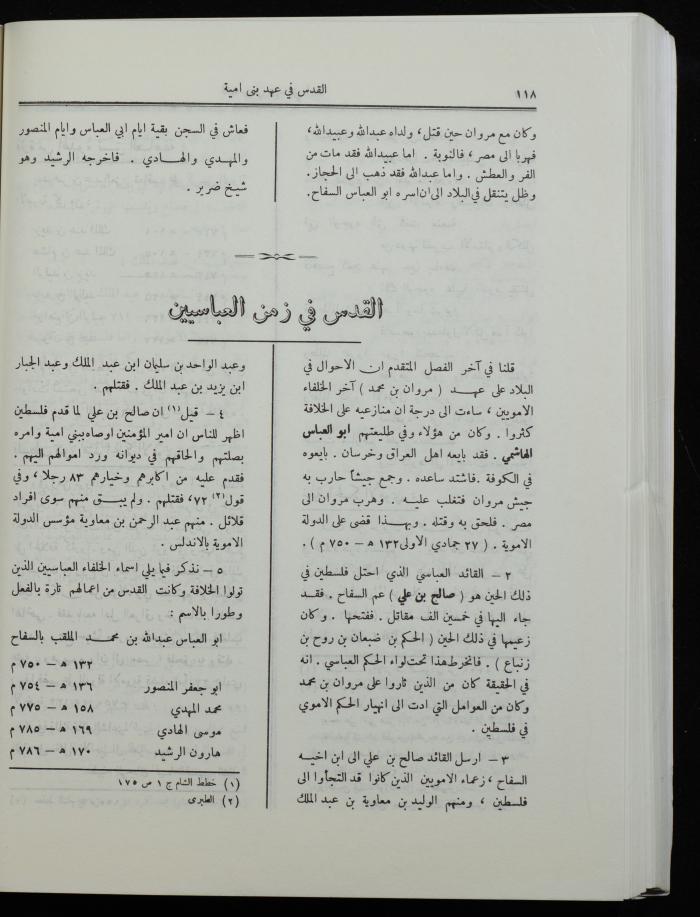 ١١٨
القدس في عهد بنى امية
وكان مع مروان حين قتل، ولداه عبدالله وعبيدالله،
فهربا الى مصر، فالنوبة . اما عبيدالله فقد مات من
الفر والعطش . واما عبدالله فقد ذهب الى الحجاز.
وظل يتنقل في البلاد الى ان اسره ابو العباس السفاح.
فعاش في السجن بقية ايام ابي العباس وايام المنصور
والمهدي والهادي . فاخرجه الرشيد وهو
شيخ ضرير .
القدس في زمن العباسيين
قلنا في آخر الفصل المتقدم ان الاحوال في
البلاد على عهد ( مروان بن محمد ) آخر الخلفاء
الامويين ، ساءت الى درجة ان منازعيه على الخلافة
كثروا . وكان من هؤلاء وفي طليعتهم ابو العباس
الهاشمي . فقد بايعه اهل العراق وخرسان . بايعوه
في الكوفة . فاشتد ساعده . وجمع جيشاً حارب به
جيش مروان فتغلب عليه . وهرب مروان الى
مصر . فلحق به وقتله . وبهذا قضى على الدولة
الاموية . ( ٢٧ جمادي الاولى ١٣٢ ه – ٧٥٠ م ) .
٢ – القائد العباسي الذي احتل فلسطين في
ذلك الحين هو ( صالح بن علي ) عم السفاح . فقد
جاء اليها في خمسين الف مقاتل . ففتحها . وكان
زعيمها في ذلك الحين ( الحكم بن ضبعان بن روح بن
زنباع ) . فانخرط هذا تحت لواء الحكم العباسي . انه
في الحقيقة كان من الذين ثاروا على مروان بن محمد
وكان من العوامل التي ادت الى انهيار الحكم الاموي
في فلسطين .
٣ – ارسل القائد صالح بن علي الى ابن اخيه
السفاح ، زعماء الامويين الذين كانوا قد التجأوا الى
فلسطين ، ومنهم الوليد بن معاوية بن عبد الملك
وعبد الواحد بن سليمان ابن عبد الملك وعبد الجبار
ابن يزيد بن عبد الملك . فقتلهم .
٤ – قيل (١) ان صالح بن علي لما قدم فلسطين
اظهر للناس ان امير المؤمنين اوصاه ببني امية وامره
بصلتهم والحاقهم في ديوانه ورد اموالهم اليهم .
فقدم عليه من اكابرهم وخيارهم ٨٣ رجلا ، وفي
قول (٢) ٧٢، فقتلهم . ولم يبق منهم سوى افراد
قلائل . منهم عبد الرحمن بن معاوية مؤسس الدولة
الاموية بالاندلس .
٥ – نذكر فيما يلي اسماء الخلفاء العباسيين الذين
تولوا الخلافة وكانت القدس من اعمالهم تارة بالفعل
وطورا بالاسم :
ابو العباس عبدالله بن محمد الملقب بالسفاح
١٣٢ ه – ٧٥٠ م
ابو جعفر المنصور ١٣٦ ه – ٧٥٤ م
محمد المهدي ١٥٨ ه – ٧٧٥ م
موسى الهادي ١٦٩ ه – ٧٨٥ م
هارون الرشيد ١٧٠ ه – ٧٨٦ م
(١) خطط الشام ج ١ ص ١٧٥
(٢) الطبرى